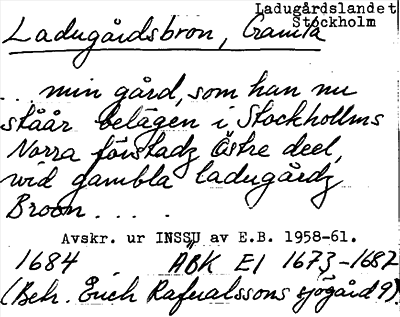 Ladugårdslandet
Stockholm
Ladugårdsbron, Gamla
... min gård, som han nu
ståår belägen i Stockhollms
Norra förstadz Östre deel,
wid gambla ladugårdz
Broon.....
Avskr. ur INSSÜ av E.B. 1958-61.
1684 ÄBK E1 1673-1687
(Beh. Erich Rafualssons sjögård 9).